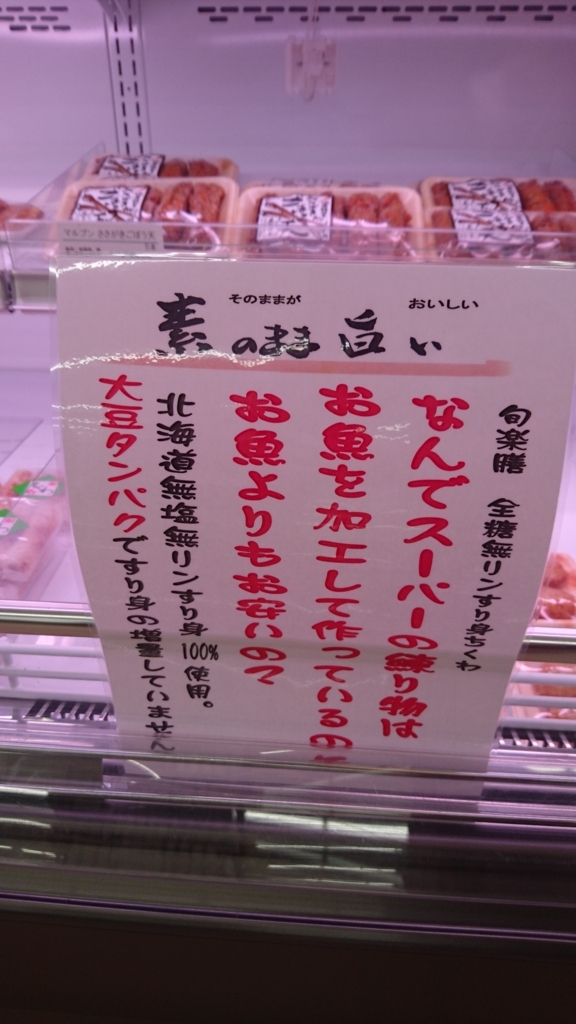 そのままが おいしい
素のまま旨い
旬楽膳 全糖無リンすり身ちくわ
なんでスーパーの練り物は
お魚を加工して作っているのに
お魚よりもお安いの?
北海道無塩無リンすり身100%使用。
大豆タンパクですり身の増量していません
マルブン ささがきごぼう天